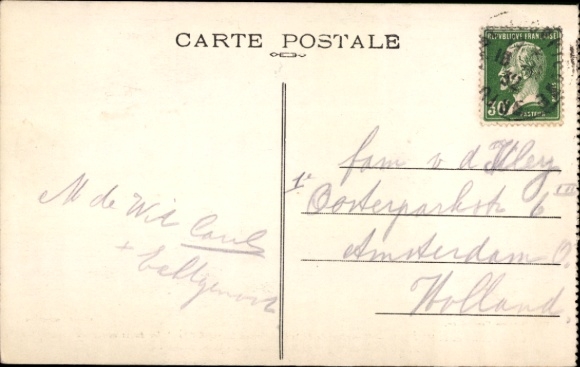 CARTE POSTALE
REPUBLIQUE FRANÇAISE
30
PASTEUR
M de Wit
+
fam v d
1e Oosterparkstr 6 III
Amsterdam O.
Holland